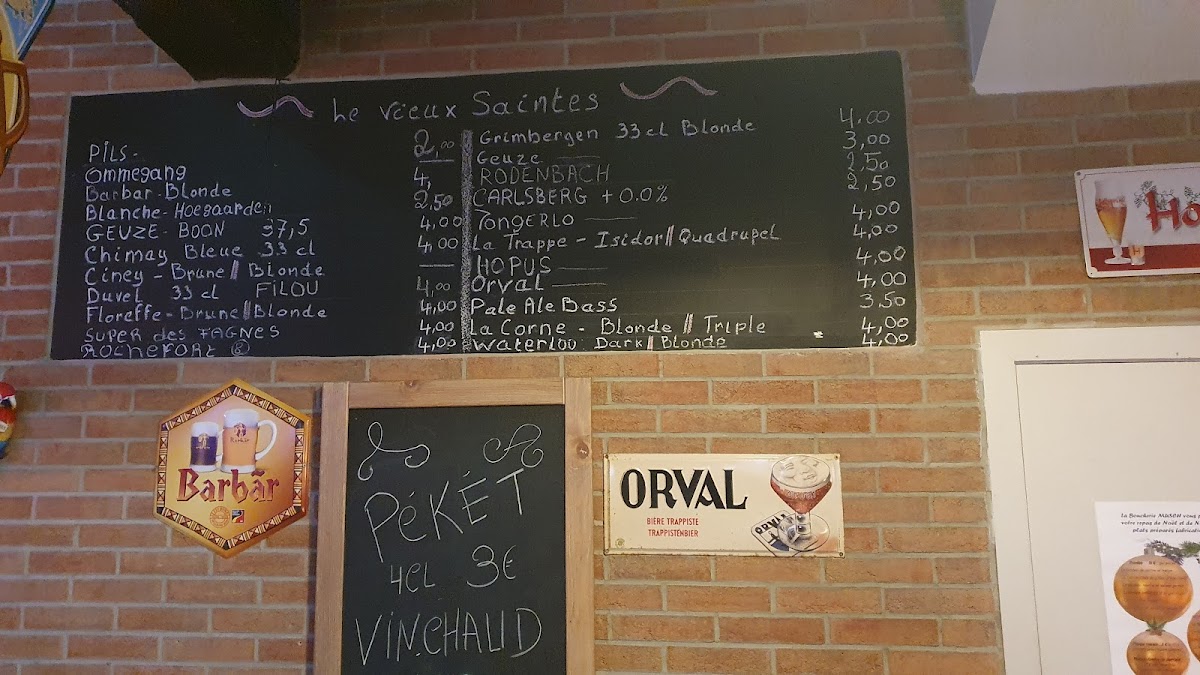 Le vieux Saintes
PILS - 2,00
Ommegang
Barbar-Blonde 4,
Blanche-Hoegaarden 2,50
GEUZE-BOON 37,5 4,00
Chimay Bleue 33 cl 4,00
Ciney - Brune // Blonde
Duvel 33 cl FILOU 4,00
Floreffe-Brune//Blonde 4,00
SUPER des FAGNES 4,00
ROCHEFORT 8 4,00
Grimbergen 33 cl Blonde 4,00
Geuze 3,00
RODENBACH 2,50
CARLSBERG + 0.0% 2,50
Tongerlo 4,00
La Trappe - Isidor // Quadrupel 4,00
HOPUS 4,00
Orval 4,00
Pale Ale Bass 3,50
La Corne - Blonde // Triple 4,00
Waterlou Dark // Blonde 4,00
Ho
Barbãr
PÉKÉT
4CL 3€
VIN.CHAUD
ORVAL
BIÈRE TRAPPISTE
TRAPPISTENBIER
ORVAL
La Boucherie MUSCH vous p
votre repas de Noël et de N
plats préparés fabricat